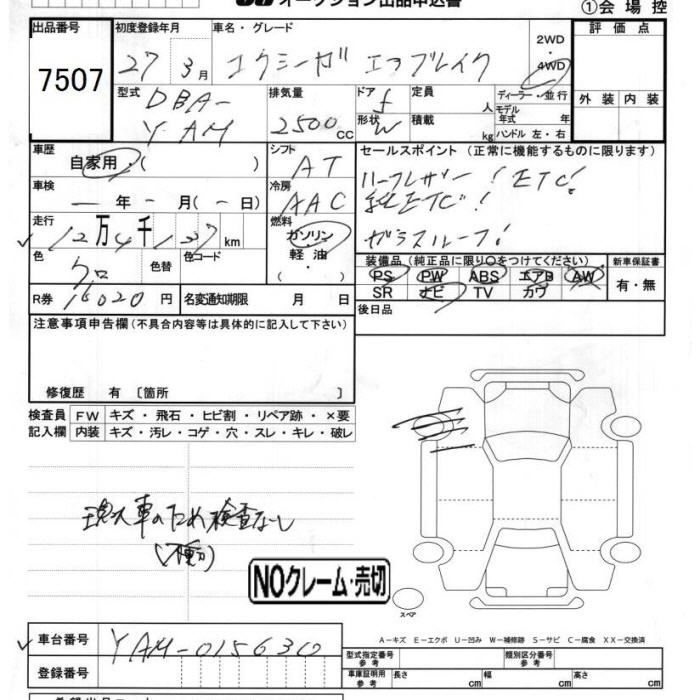 オークション出品申込書
①会場控
出品番号 初度登録年月 車名・グレード 評価点
7507 27 3月 エクシーガ エアブレイク 2WD・4WD
型式 排気量 ドア 定員 人 ディーラー・並行
DBA-YAM 2500CC 形状 W 積載 kg モデル年式 年 ハンドル 左・右
外装 内装
車歴 シフト セールスポイント (正常に機能するものに限ります)
自家用・( ) AT ハーフレザー! ETC!
車検 冷房
― 年 - 月 (- 日) AAC 純ETC!
走行 燃料
12万4千137km ガソリン・軽油・ ガラスルーフ!
色 色替 色コード 装備品 (純正品に限り○をつけてください) 新車保証書
クロ PS PW ABS エアB AW 有・無
R券 16020円 名変通知期限 月 日 SR ナビ TV カワ
後日品
注意事項申告欄 (不具合内容等は具体的に記入して下さい)
修復歴 有 〔箇所 〕
検査員 FW キズ・飛石・ヒビ割・リペア跡・×要
記入欄 内装 キズ・汚レ・コゲ・穴・スレ・キレ・破レ
現状車のため検査なし
(不動)
NOクレーム・売切
スペア
A-キズ E-エクボ U-凹み W-補修跡 S-サビ C-腐食 XX-交換済
車台番号 YAM-015630
登録番号
型式指定番号 参考 類別区分番号 参考
車庫証明用 参考 長さ cm 幅 cm 高さ cm